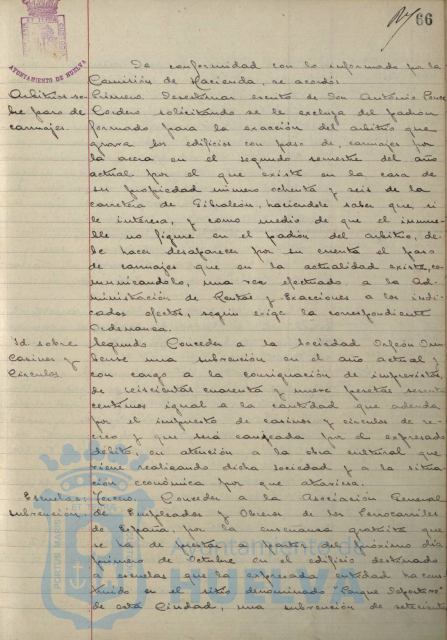 66
AYUNTAMIENTO DE HUELVA
De conformidad con lo informado por la
Comisión de Hacienda, se acordó:
Arbitrio so-
bre paso de
carruajes.
Primero. Desestimar escrito de Don Antonio Ponce
Cordero solicitando se le excluya del padrón
formado para la exacción del arbitrio que
grava los edificios con paso de carruajes por
la acera en el segundo semestre del año
actual por el que existe en la casa de
su propiedad número ochenta y seis de la
carretera de Gibraleón, haciéndole saber que si
le interesa, y como medio de que el inmue-
ble no figure en el padrón del arbitrio, de-
be hacer desaparecer por su cuenta el paso
de carruajes que en la actualidad existe, co-
municándolo, una vez efectuado, a la Ad-
ministración de Rentas y Exacciones a los indi-
cados efectos, según exige la correspondiente
Ordenanza.
Id. sobre
Casinos y
Círculos.
Segundo. Conceder a la Sociedad Orfeón Onu-
bense una subvención en el año actual y
con cargo a la consignación de imprevistos,
de seiscientas cuarenta y nueve pesetas sesenta
céntimos igual a la cantidad que adeuda
por el impuesto de casinos y círculos de re-
creo y que será canjeada por el expresado
débito, en atención a la obra cultural que
viene realizando dicha sociedad y a la situa-
ción económica por que atraviesa.
Escuelas,
subvención.
Tercero. Conceder a la Asociación General
de Empleados y Obreros de los Ferrocarriles
de España, por la enseñanza gratuita que
se ha de prestar a partir del próximo día
primero de Octubre en el edificio destinado
a escuelas que la expresada entidad ha cons-
truido en el sitio denominado "Parque Deportivo"
de esta Ciudad, una subvención de setecientas
PORTUS MARIS
Ayuntamiento de
HUELVA